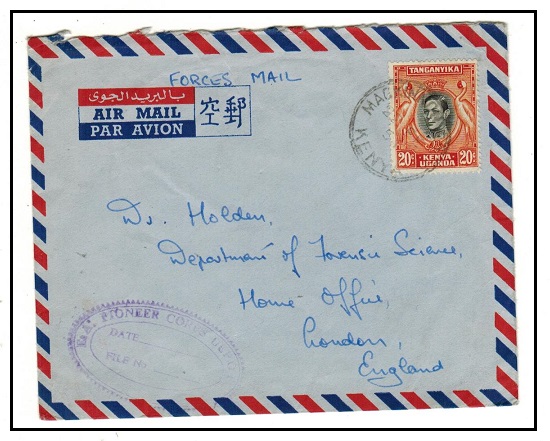 FORCES MAIL
بالبريد الجوى
AIR MAIL
PAR AVION
空郵
TANGANYIKA
20c
KENYA
UGANDA
20c
KENYA
Dr. Holden,
Department of Forensic Science,
Home Office,
London,
England
E.A. PIONEER CORPS
DATE
FILE No